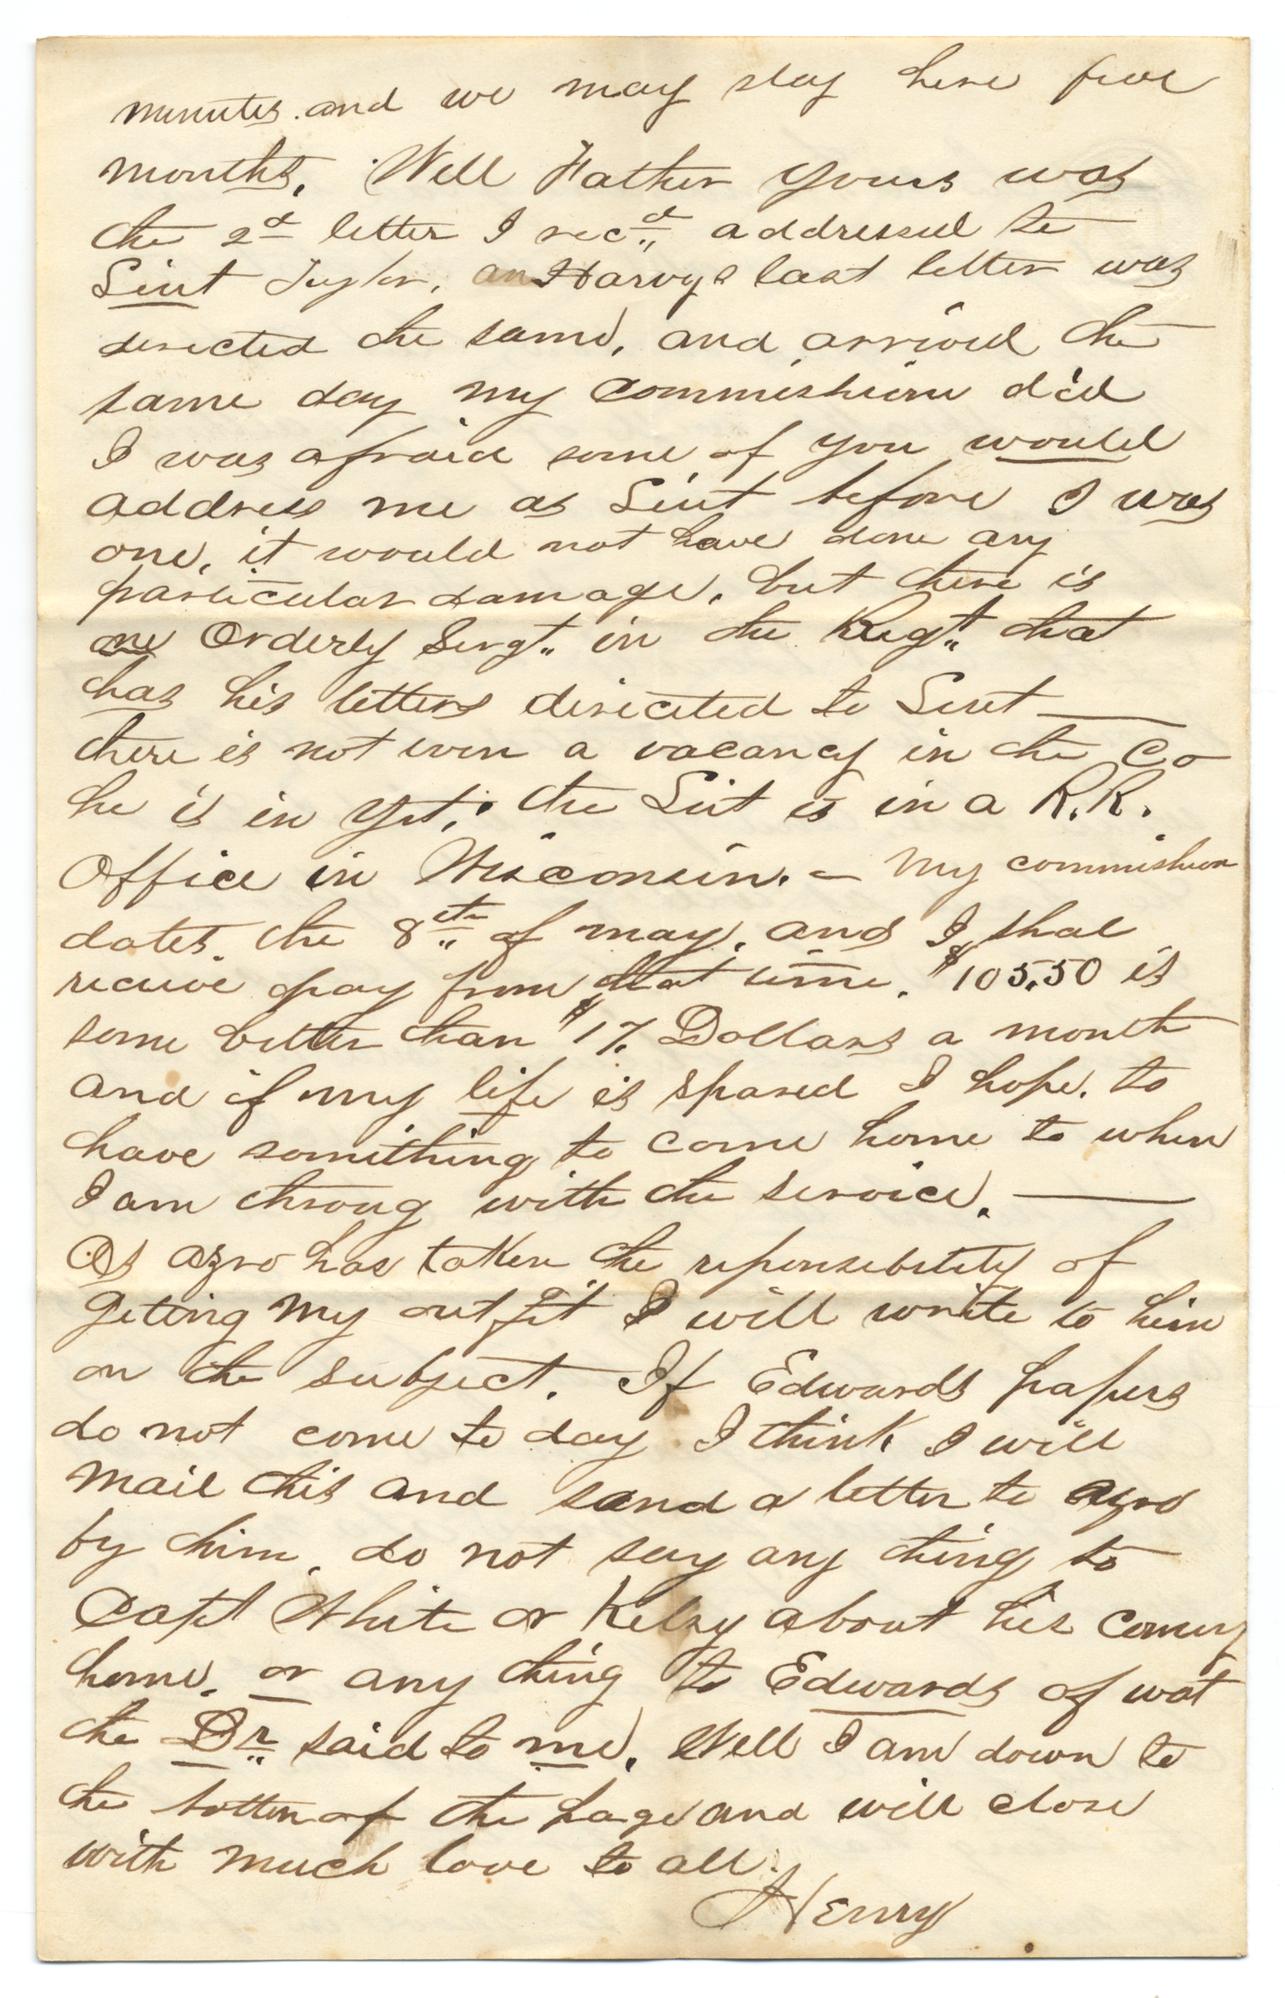 minutes. and we may stay here five
months. Well Father yours was
the 2d letter I recd addressed to
Lieut Taylor, an Harvys last letter was
directed the same, and arrived the
same day my commishion did
I was afraid some of you would
address me as Lieut before I was
one, it would not have done any
particular damage. but there is
one Orderly Sergt. in the Regt. that
has his letters directed to Lieut —
there is not even a vacancy in the Co
he is in yet; the Lieut is in a R.R.
Office in Wisconsin. — My commishion
dates the 8th of may, and I shal
receive pay from that time. $105.50 is
some better than $17. Dollars a month
and if my life is spared I hope. to
have something to come home to when
I am throug with the service. —
As azro has taken the reponsebility of
geting my outfit I will write to him
on the subject. If Edwards papers
do not come to day I think I will
mail this and send a letter to azro
by him. do not say any thing to
Capt White or Kelsy about his coming
home. or any thing to Edwards of wat
the Dr. said to me. Well I am down to
the bottom of the page and will close
with much love to all.
Henry